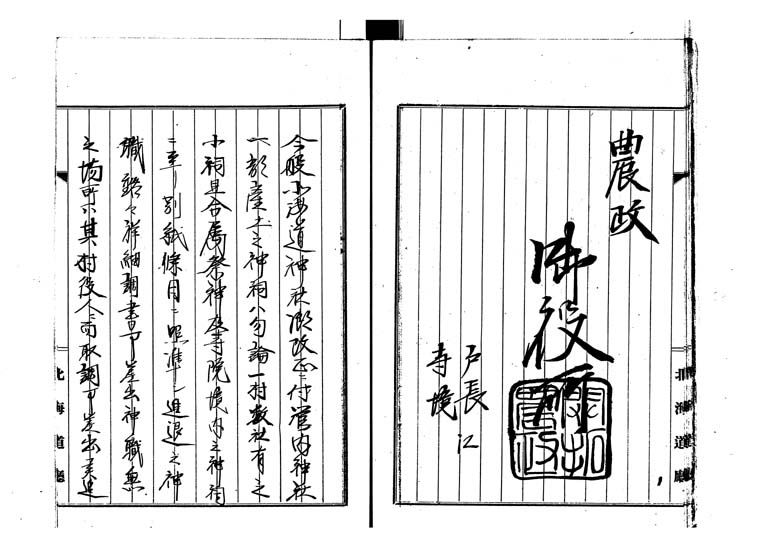 農政
御役所
戸長江
寺境
北海道廳
今般北海道神社御改正ニ付管内神社
一郡産土之神祠ハ勿論一村数社有之
小祠且合属祭神及寺院境内之神祠
ニ至リ別紙條目ニ照準シ進退之神
職銘々詳細調書可差出神職無
之場所ハ其村役人ニ而取調可差出
北海道廳